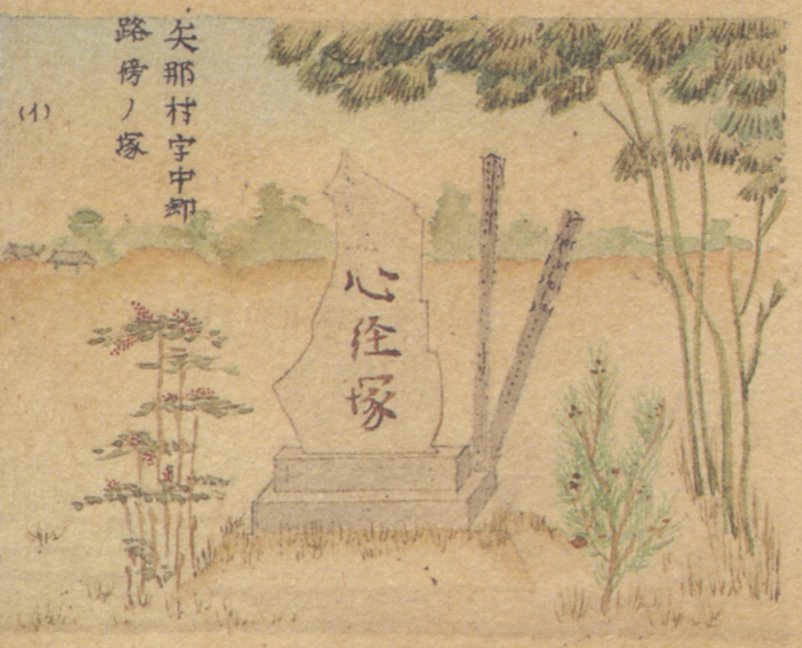 矢那村字中郷
路傍ノ塚
(1)
心経塚